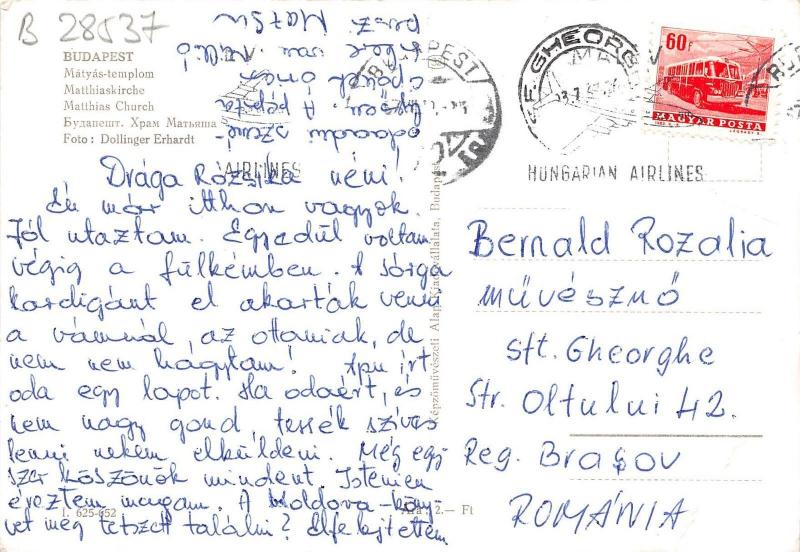 B 28537
BUDAPEST
Mátyás-templom
Matthiaskirche
Matthias Church
Будапешт. Храм Матьяша
Foto: Dollinger Erhardt
AIRLINES
Drága Rózsika néni!
Én már itthon vagyok.
Jól utaztam. Egyedül voltam
végig a fülkémben. A sárga
kardigánt el akarták venni
a vámnál, az ottaniak, de
nem nem hagytam! Apu írt
oda egy lapot. Ha odaért, és
nem nagy gond, tessék szíves
lenni nekem elküldeni. Még egy-
szer köszönök mindent. Istenien
éreztem magam. A Moldova-köny-
vet meg tetszett találni? Elfelejtettem
odaadni
A
puszi
I. 625-652
Ára: 2.— Ft
Képzőművészeti Alap Kiadóvállalata, Budapest
BUDAPEST
GHEORG
60f
MAGYAR POSTA
HUNGARIAN AIRLINES
Bernald Rozalia
művésznő
Sft. Gheorghe
Str. Oltului 42.
Reg. Braşov
ROMÁNIA